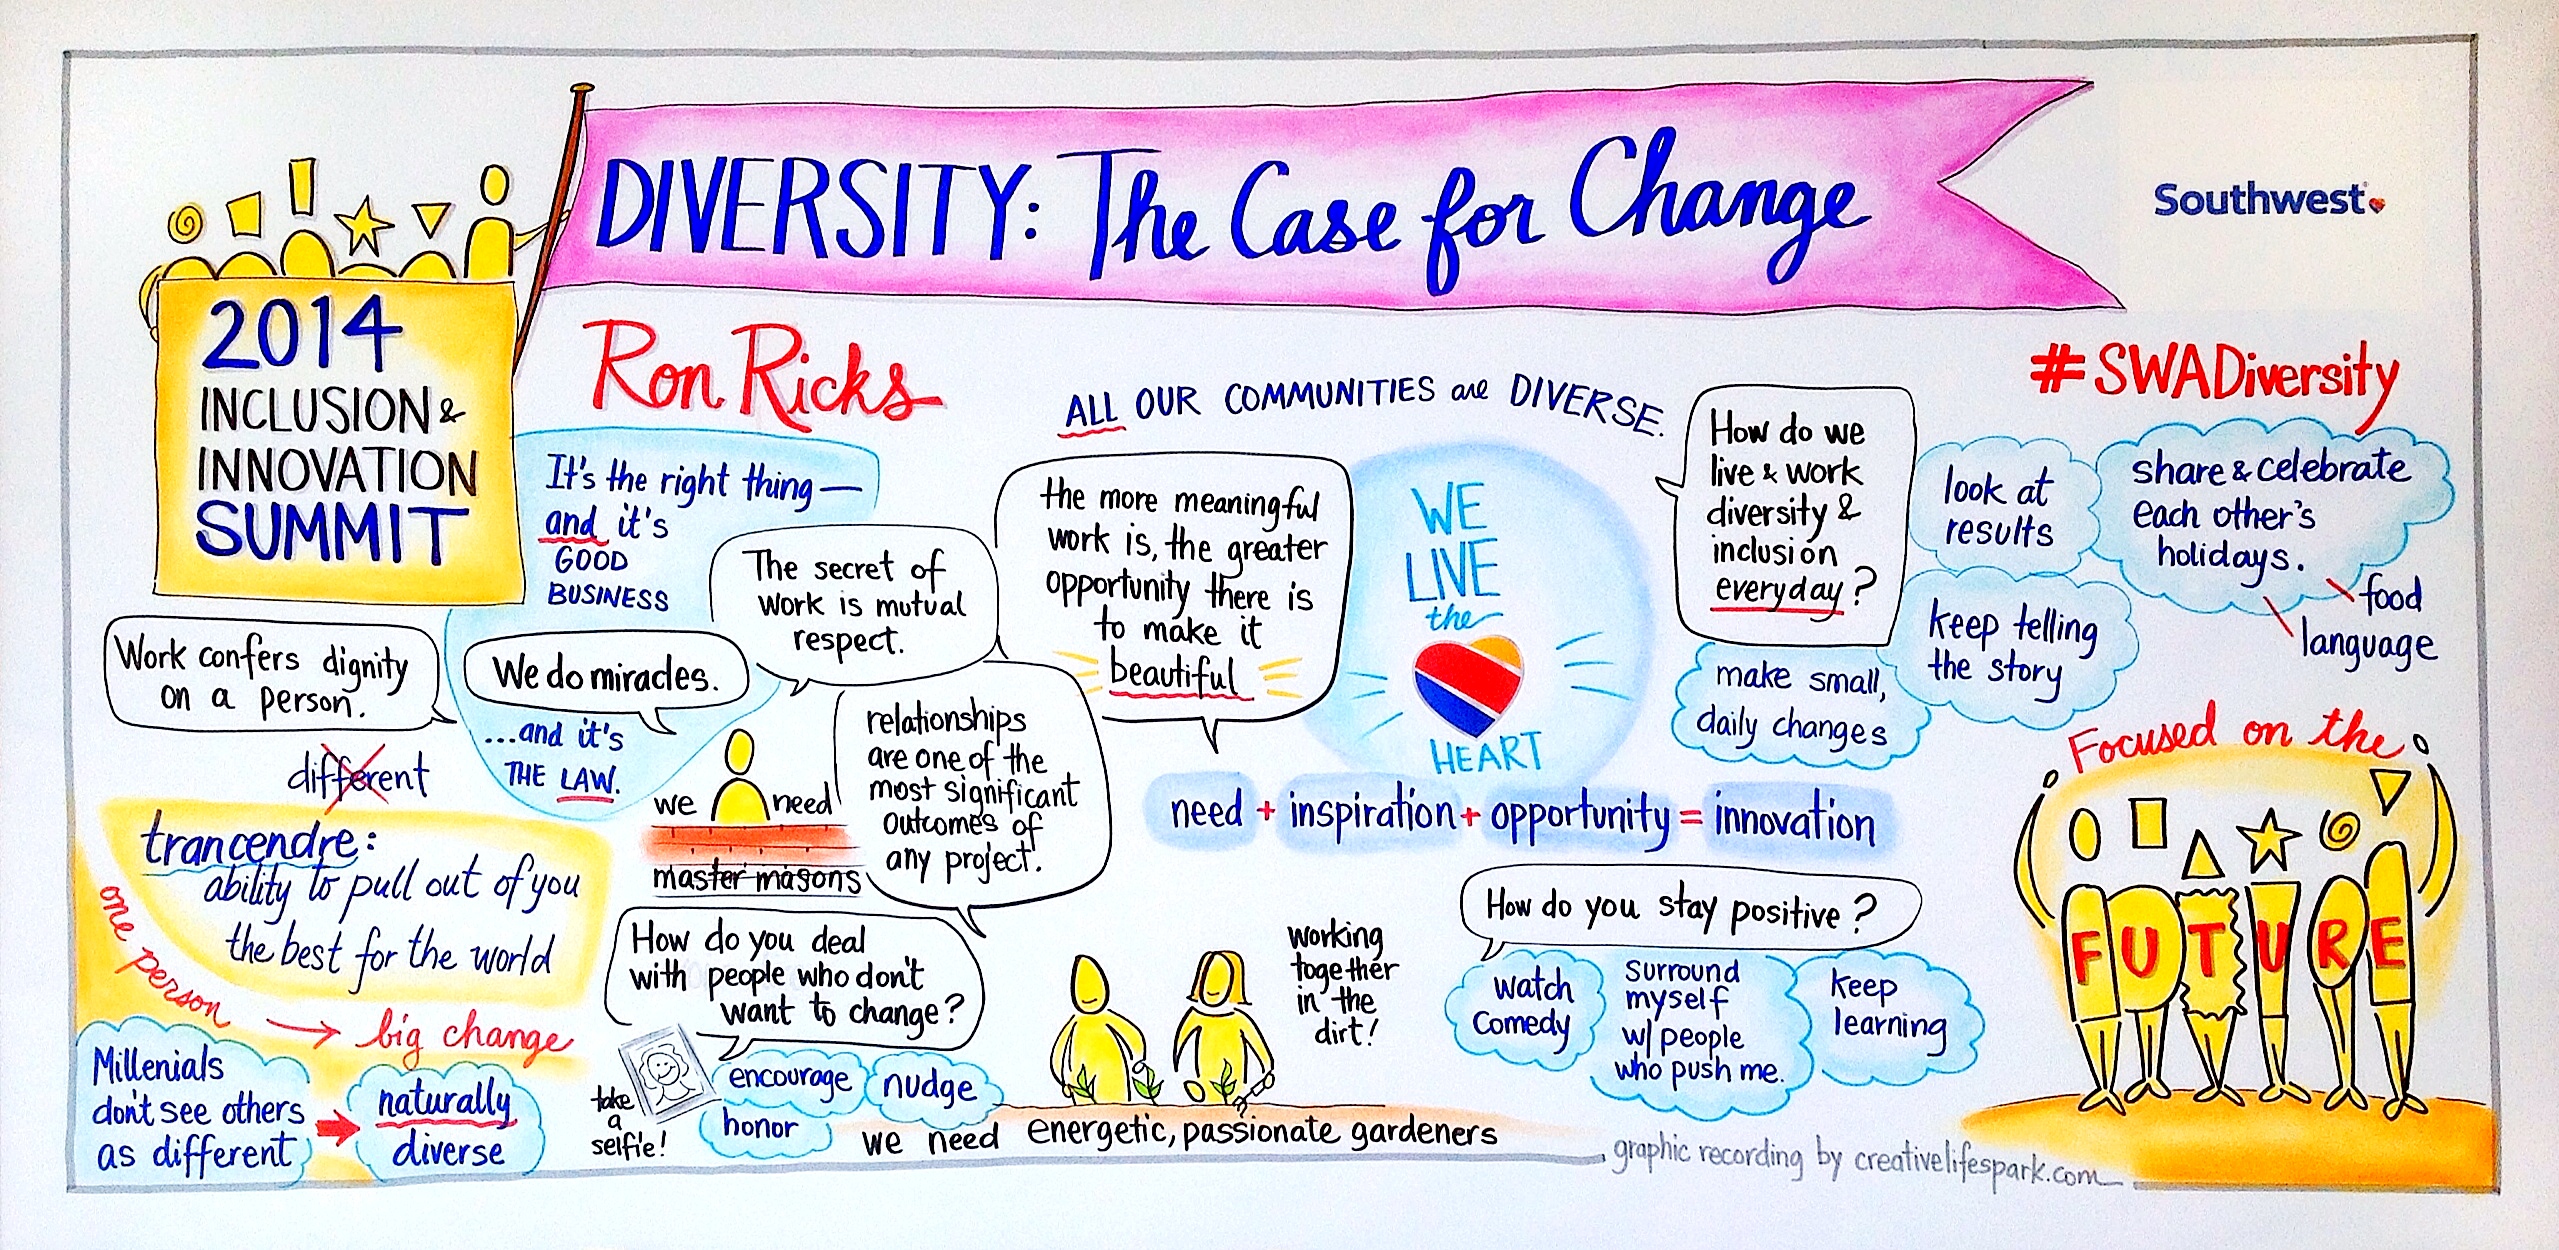 DIVERSITY: The Case for Change
Southwest
2014
INCLUSION &
INNOVATION
SUMMIT
Ron Ricks
#SWADiversity
It's the right thing—
and it's
GOOD
BUSINESS
...and it's
THE LAW.
Work confers dignity
on a person.
We do miracles.
The secret of
work is mutual
respect.
we need
master masons
relationships
are one of the
most significant
outcomes of
any project.
ALL OUR COMMUNITIES are DIVERSE.
the more meaningful
work is, the greater
opportunity there is
to make it
beautiful
WE
LIVE
the
HEART
How do we
live & work
diversity &
inclusion
everyday?
look at
results
share & celebrate
each other's
holidays.
food
language
keep telling
the story
make small,
daily changes
need + inspiration + opportunity = innovation
different
trancendre:
ability to pull out of you
the best for the world
one person → big change
Millenials
don't see others
as different
naturally
diverse
How do you deal
with people who don't
want to change?
take
a
selfie!
encourage
nudge
honor
working
together
in the
dirt!
we need energetic, passionate gardeners
How do you stay positive?
watch
Comedy
surround
myself
w/ people
who push me.
keep
learning
Focused on the
FUTURE
graphic recording by creativelifespark.com